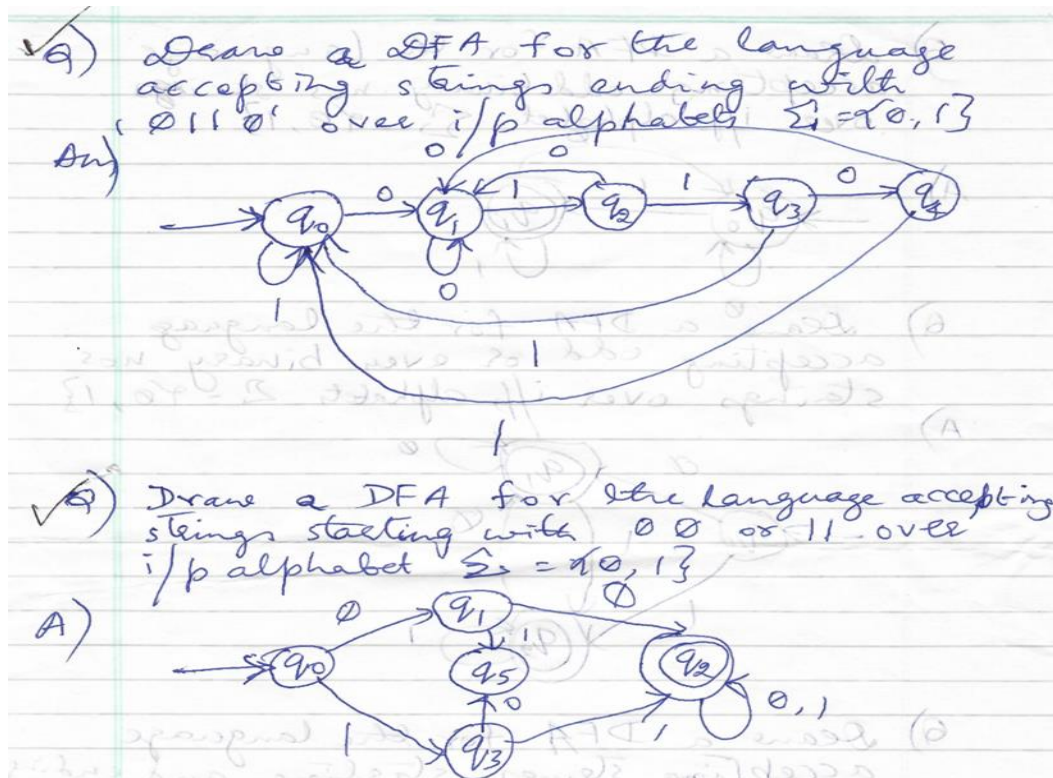 Q) Draw a DFA for the language
accepting strings ending with
'0110' over i/p alphabets Σ = {0, 1}
An)
0
0
0
1
1
0
q0
q1
q2
q3
q4
1
0
1
1
Q) Draw a DFA for the language accepting
strings starting with 00 or 11 over
i/p alphabet Σ = {0, 1}
A)
0
q1
0
1
q0
q5
q2
0
0, 1
1
q3
1